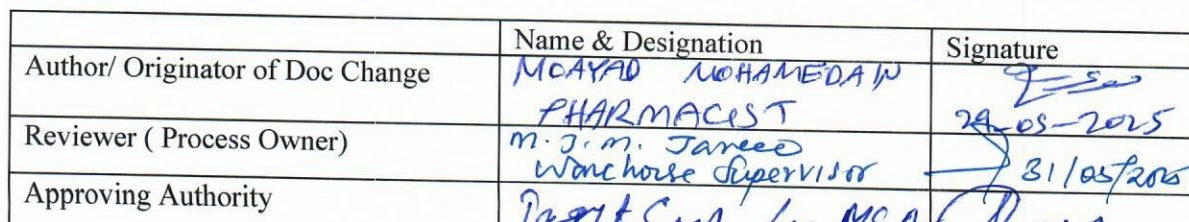 Name & Designation Signature
Author/ Originator of Doc Change MOAYAD MOHAMEDAIN
PHARMACIST 29-05-2025
Reviewer ( Process Owner) M.J.M.
Warehouse Supervisor 31/05/2025
Approving Authority